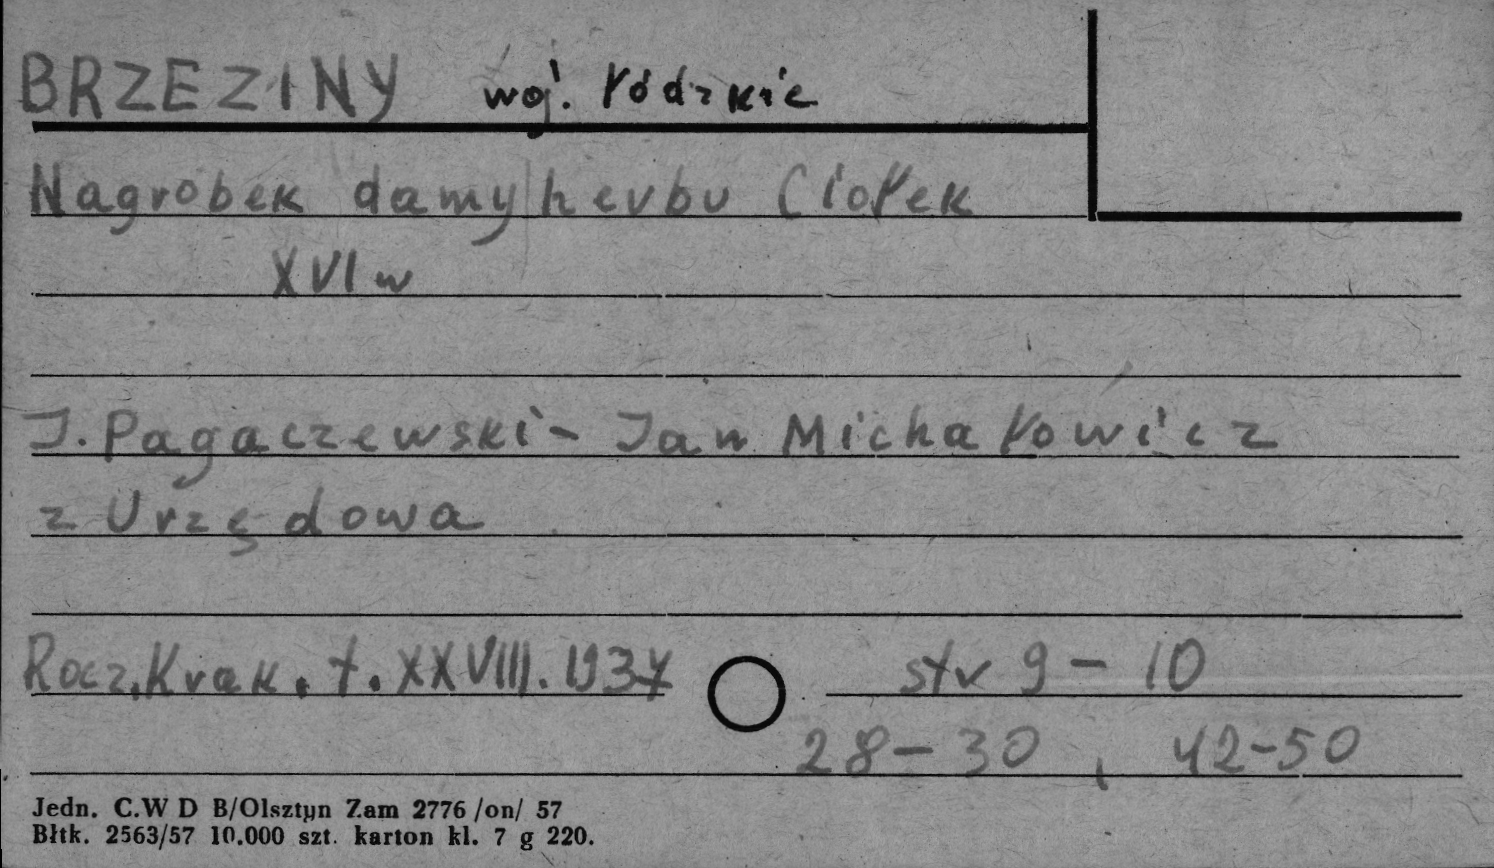 BRZEZINY woj. łódzkie
Nagrobek damy herbu Ciołek
XVI w
J. Pagaczewski – Jan Michałowicz
z Urzędowa
Rocz. Krak. t. XXVIII. 1937 str 9 – 10
28 – 30 , 42 – 50
Jedn. C.W D B/Olsztyn Zam 2776 /on/ 57
Błtk. 2563/57 10.000 szt. karton kl. 7 g 220.